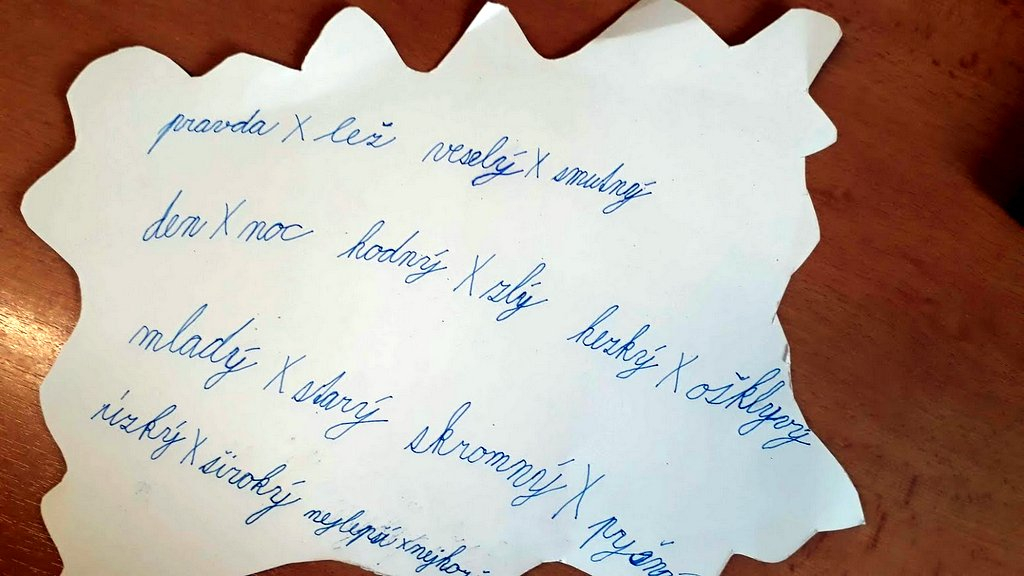 pravda X lež veselý X smutný
den X noc hodný X zlý hezký X ošklyvý
mladý X starý skromný X pyšný
X široký nejlepší x nejhor